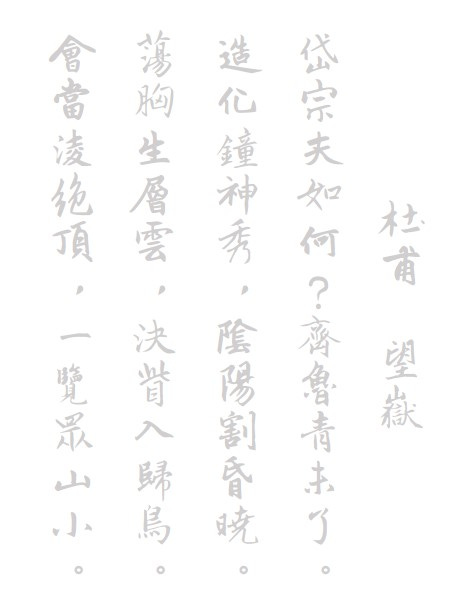 杜甫 望嶽
岱宗夫如何？齊魯青未了。
造化鐘神秀，陰陽割昏曉。
蕩胸生層雲，決眥入歸鳥。
會當淩絕頂，一覽眾山小。